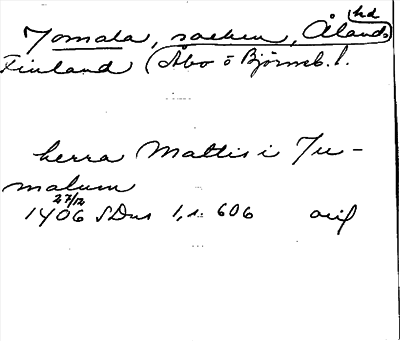 Jomala, socken, Ålands hd
Finland (Åbo o Björneb. l.
herra Mattis i Ju-
malum
27/12
1406 SDns 1, s. 606 orig